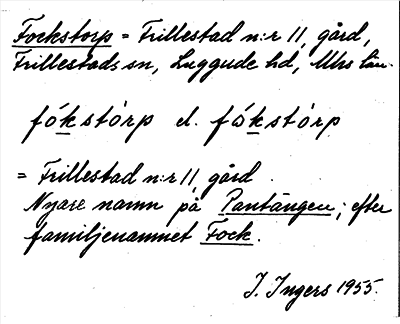 Fockstorp = Frillestad n:r 11, gård,
Frillestads sn, Luggude hd, Mhs län.
fókstòrp el. fó̀kstòrp
= Frillestad n:r 11, gård.
Nyare namn på Pantängen; efter
familjenamnet Fock.
I. Ingers 1955.